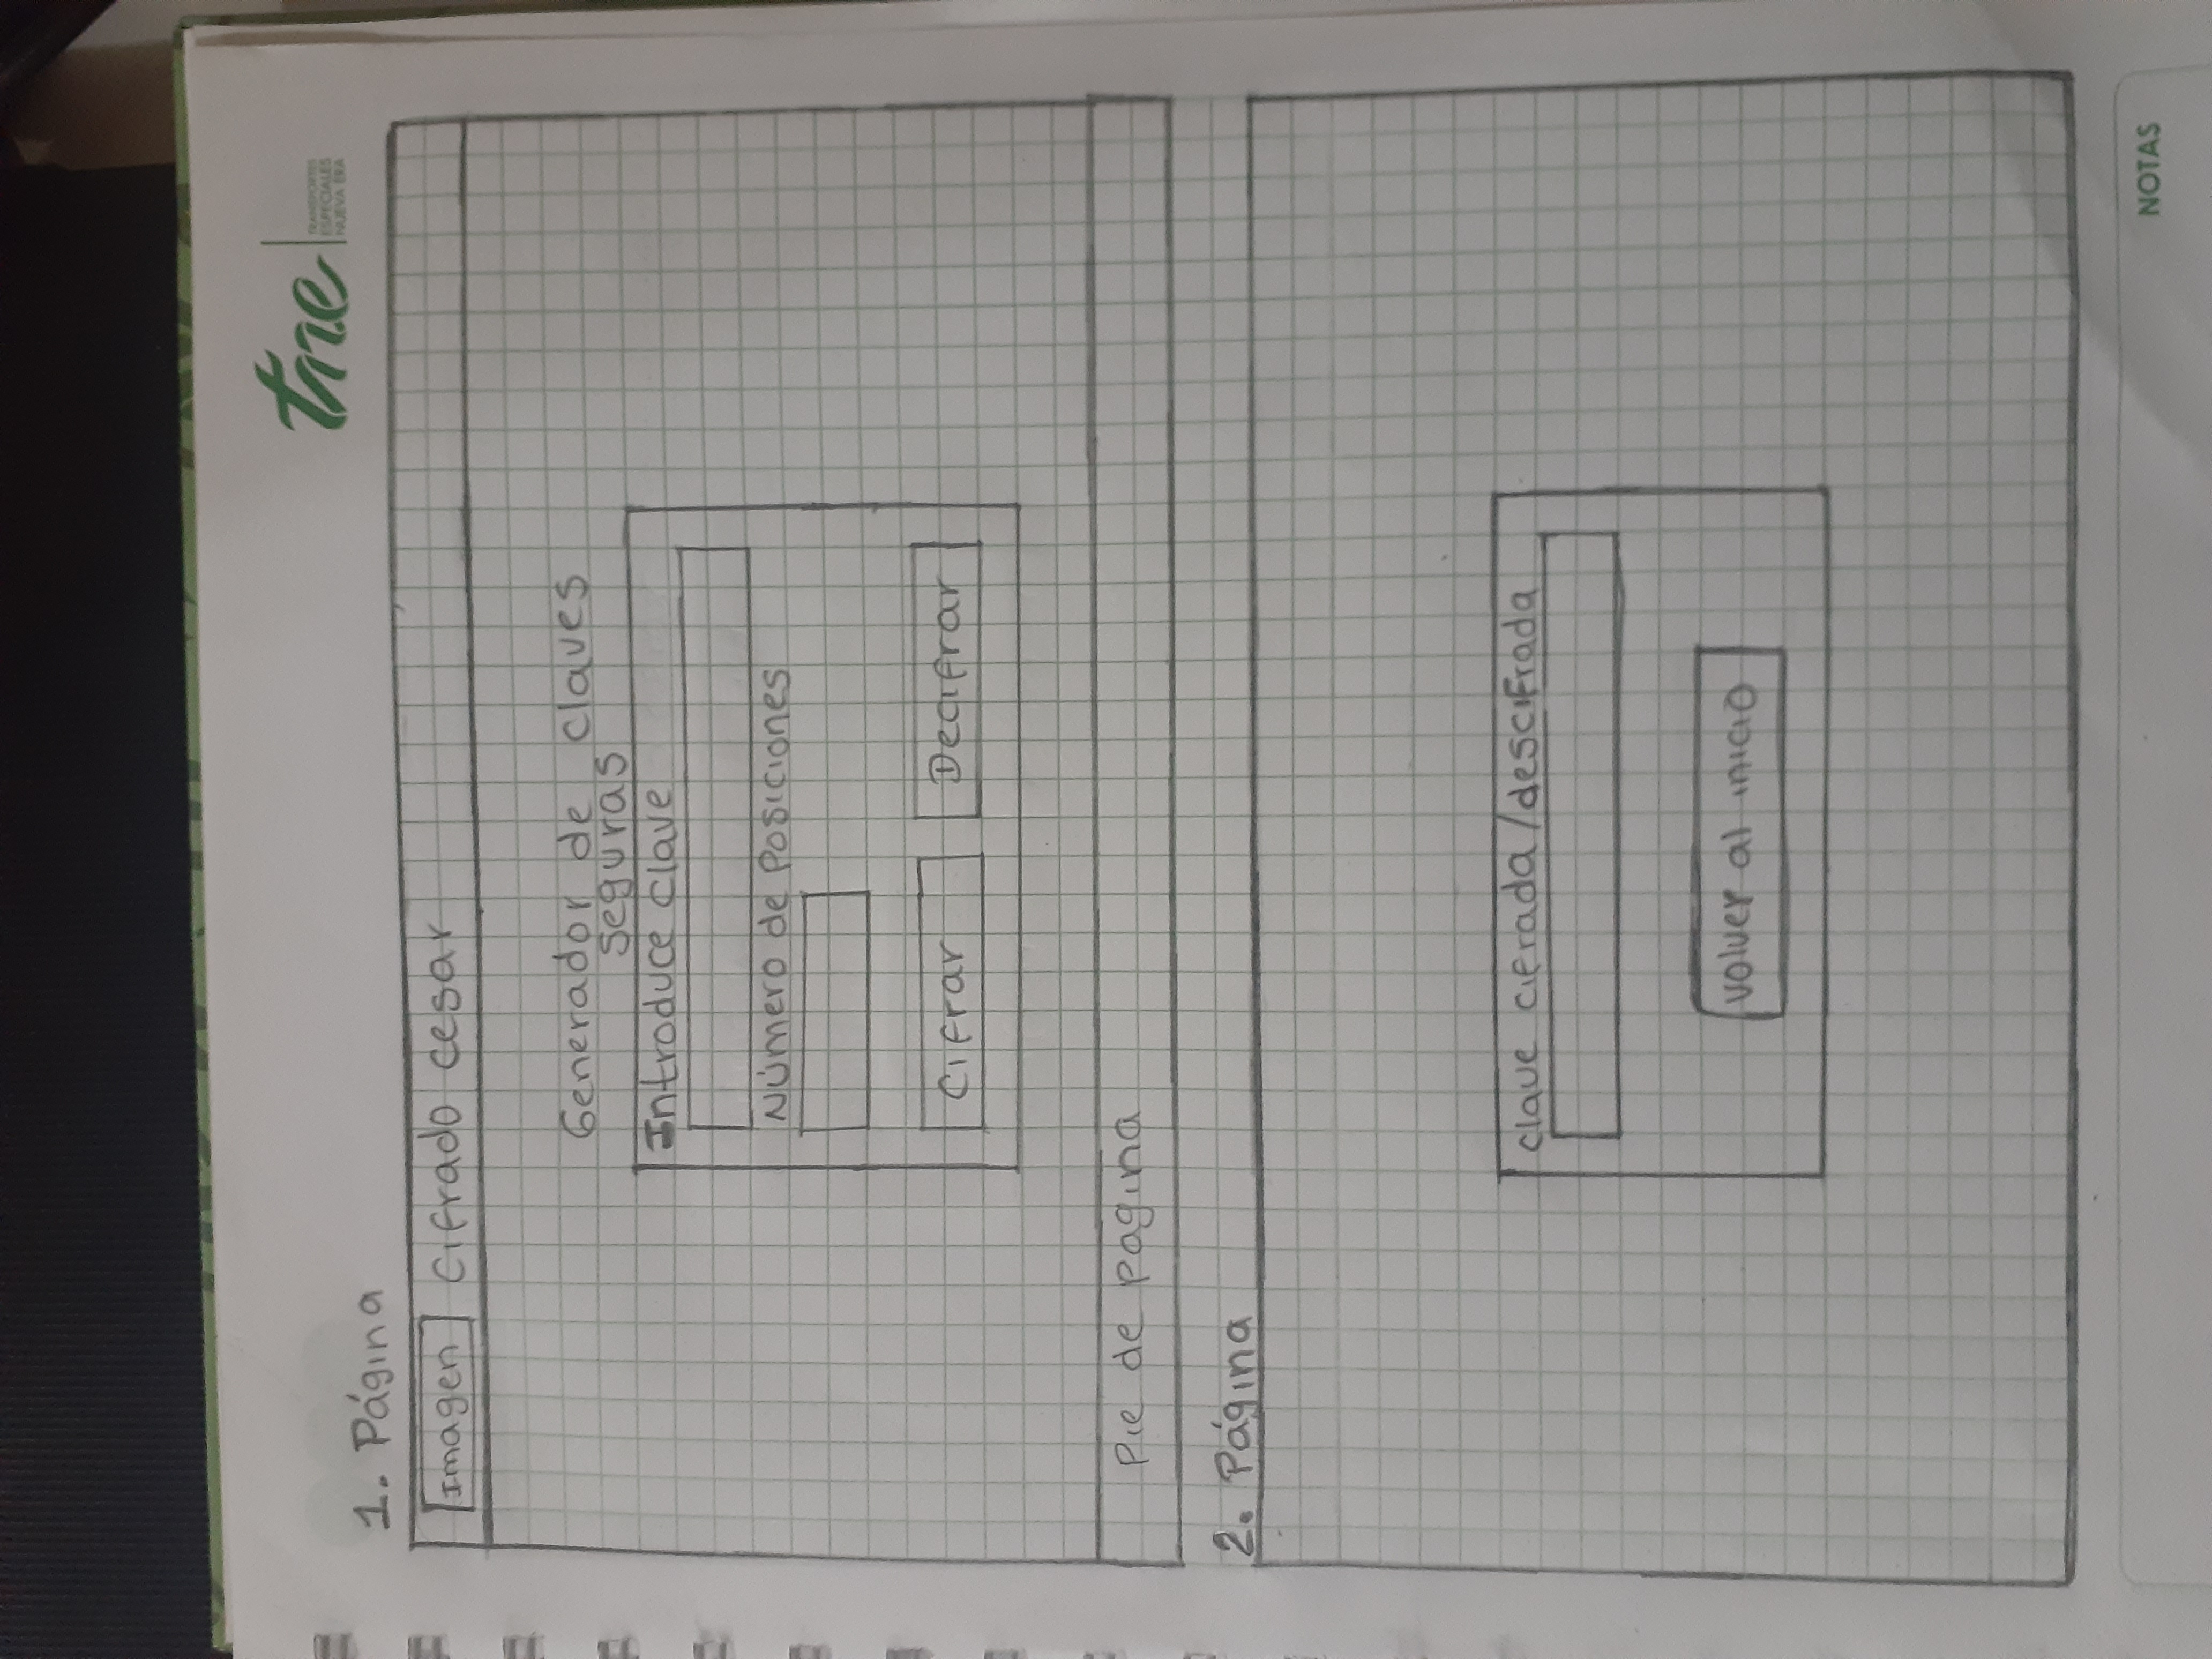 tne
TRANSPORTES
ESPECIALES
NUEVA ERA
1. Página
Imagen Cifrado cesar
Generador de claves
seguras
Introduce clave
Número de posiciones
Cifrar Decifrar
Pie de pagina
2. Página
clave cifrada/descifrada
volver al inicio
NOTAS